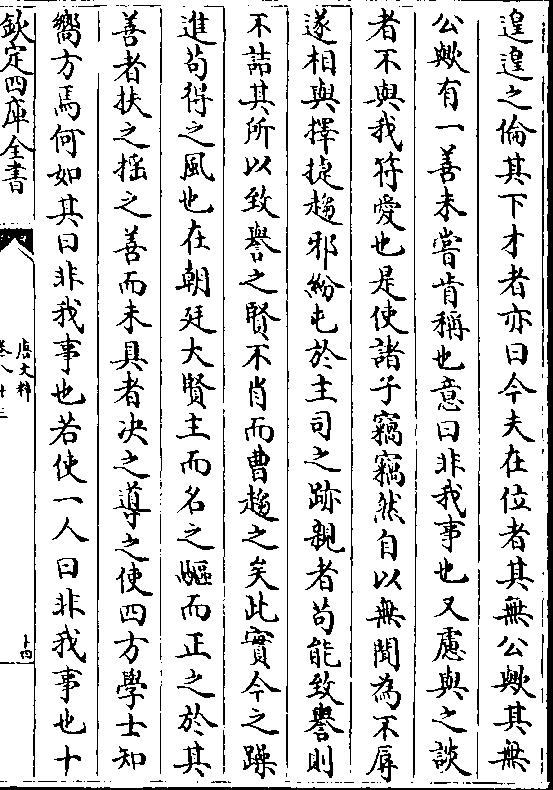 遑遑之倫其下才者亦曰今夫在位者其無公歟其無
公歟有一善未嘗肯稱也意曰非我事也又慮與之談
者不與我符愛也是使諸子竊竊然自以無聞為不辱
遂相與擇捷趨邪紛屯於主司之跡親者苟能致譽則
不詰其所以致譽之賢不肖而曹趨之矣此實今之躁
進苟得之風也在朝廷大賢主而名之嫗而正之於其
善者扶之揺之善而未具者决之導之使四方學士知
嚮方焉何如其曰非我事也若使一人曰非我事也十
欽定四庫全書
唐文粹
卷八十三
十四